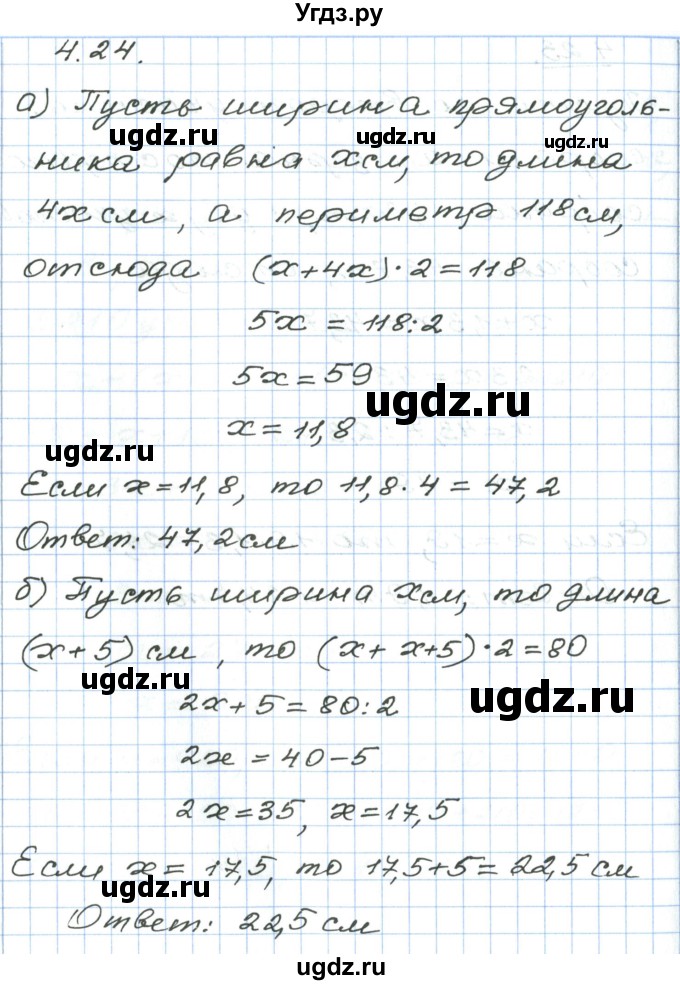 Угдз.ру
4.24.
а) Пусть ширина прямоуголь-
ugdz.ru ugdz.ru ugdz.ru
ника равна xсм, то длина
4x см, а периметр 118 см,
отсюда (x+4x)·2=118
5x = 118:2
5x=59
ugdz.ru
x=11,8
ugdz.ru
Если x=11,8, то 11,8·4=47,2
Ответ: 47,2 см
ugdz.ru
б) Пусть ширина xсм, то длина
(x+5) см, то (x+x+5)·2=80
ugdz.ru ugdz.ru
2x+5=80:2
2x=40-5
2x=35, x=17,5
Если x=17,5, то 17,5+5=22,5 см
ugdz.ru
Ответ: 22,5 см
ugdz.ru